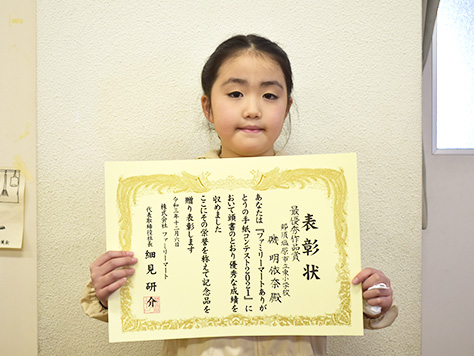 表彰状
最優秀作品賞
那須塩原市立東小学校
磯 明依奈殿
あなたは
『ファミリーマートありが
とうの手紙コンテスト2021』に
おいて頭書のとおり優秀な成績を
収めました
ここにその栄誉を称えて記念品を
贈り表彰します
令和三年十二月六日
株式会社 ファミリーマート
代表取締役社長 細見 研介